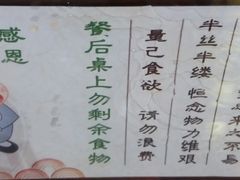 来之不易
半丝半缕 恒念物力维艰
量己食欲 请勿浪费
餐后桌上勿剩余食物
感恩